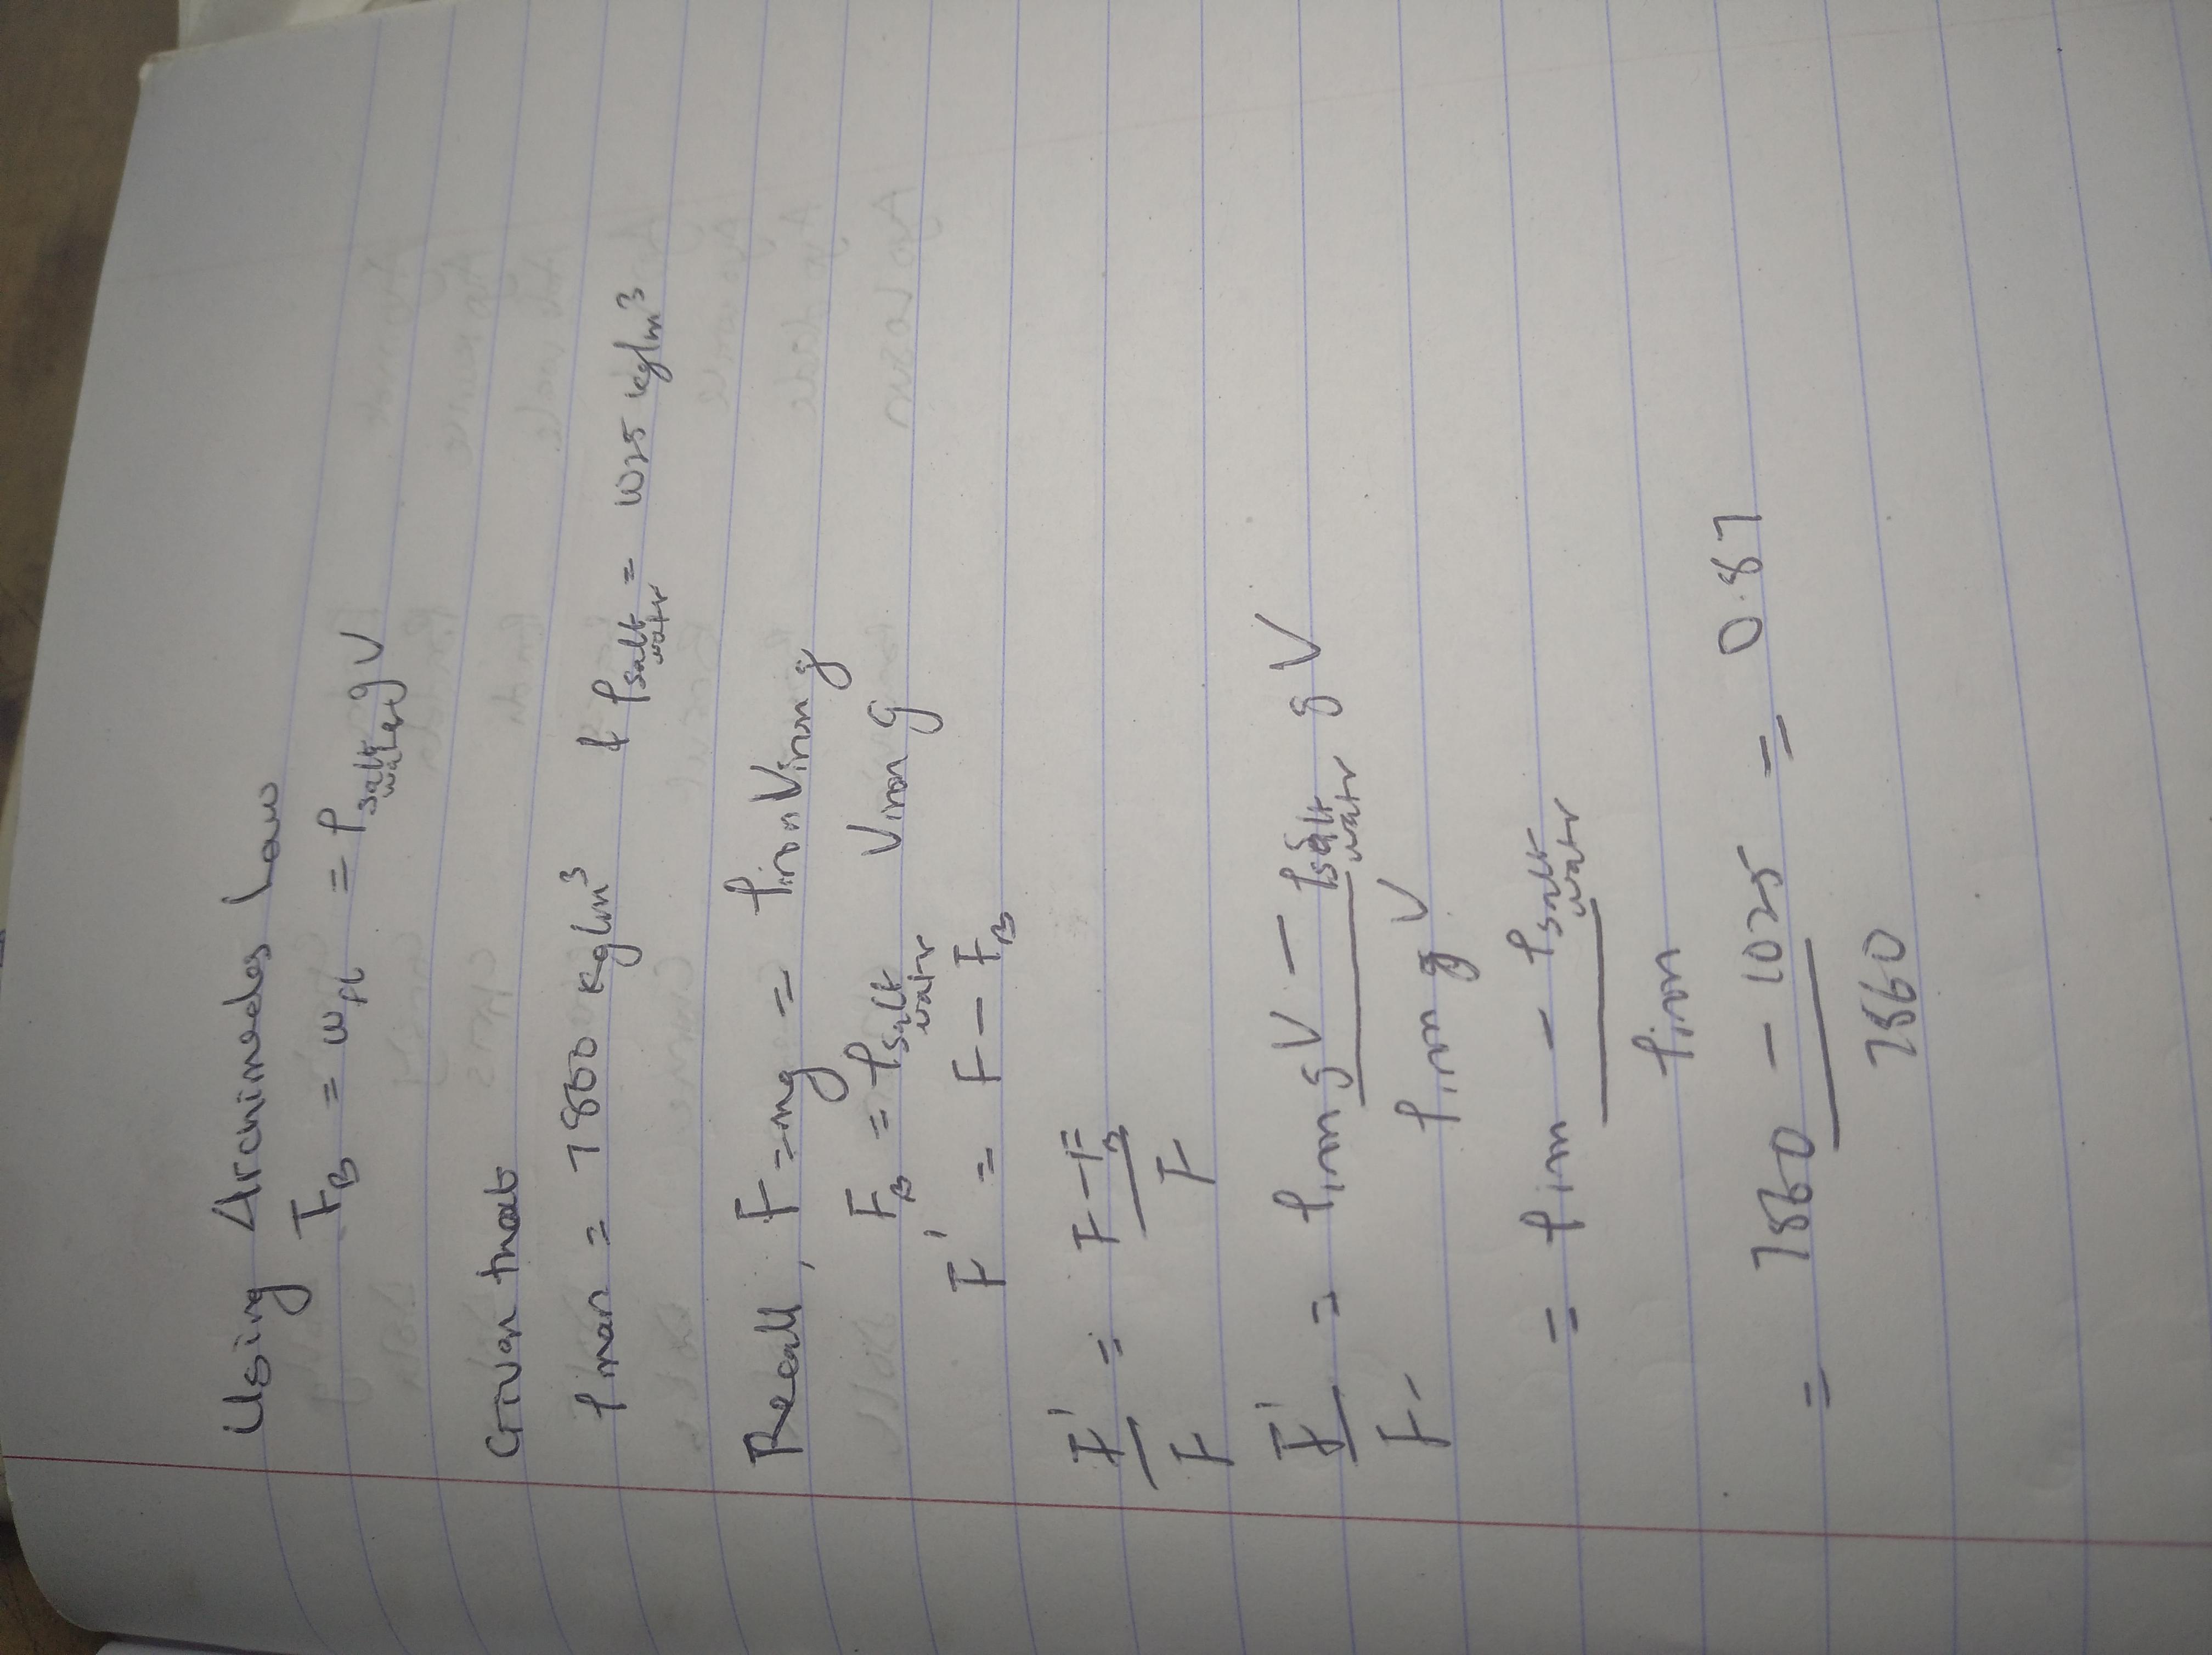 Using Archimedes Law
F_B = W_fl = ρ_salt water g V
Given that
ρ_iron = 7860 kg/m³ & ρ_salt water = 1025 kg/m³
Recall, F = mg = ρ_iron V_iron g
F_B = ρ_salt water V_iron g
F' = F - F_B
F'/F = (F - F_B)/F
F'/F = (ρ_iron g V - ρ_salt water g V)/(ρ_iron g V)
= (ρ_iron - ρ_salt water)/ρ_iron
= (7860 - 1025)/7860 = 0.87